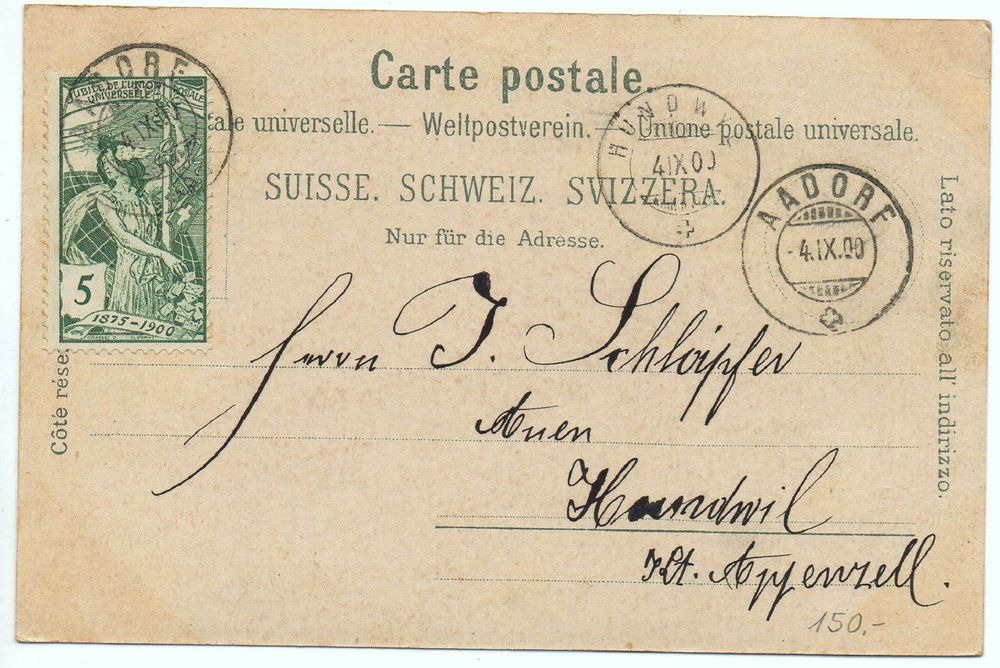 Carte postale.
ale universelle. — Weltpostverein. — Unione postale universale.
SUISSE. SCHWEIZ. SVIZZERA.
Nur für die Adresse.
JUBILÉ DE L'UNION POSTALE
UNIVERSELLE
5
1875-1900
HUNDWIL
4 IX 00
AADORF
-4.IX.00
AADORF
Côté rése
Lato riservato all' indirizzo.
Herrn J. Schläpfer
Auen
Hundwil
Kt. Appenzell.
150.-